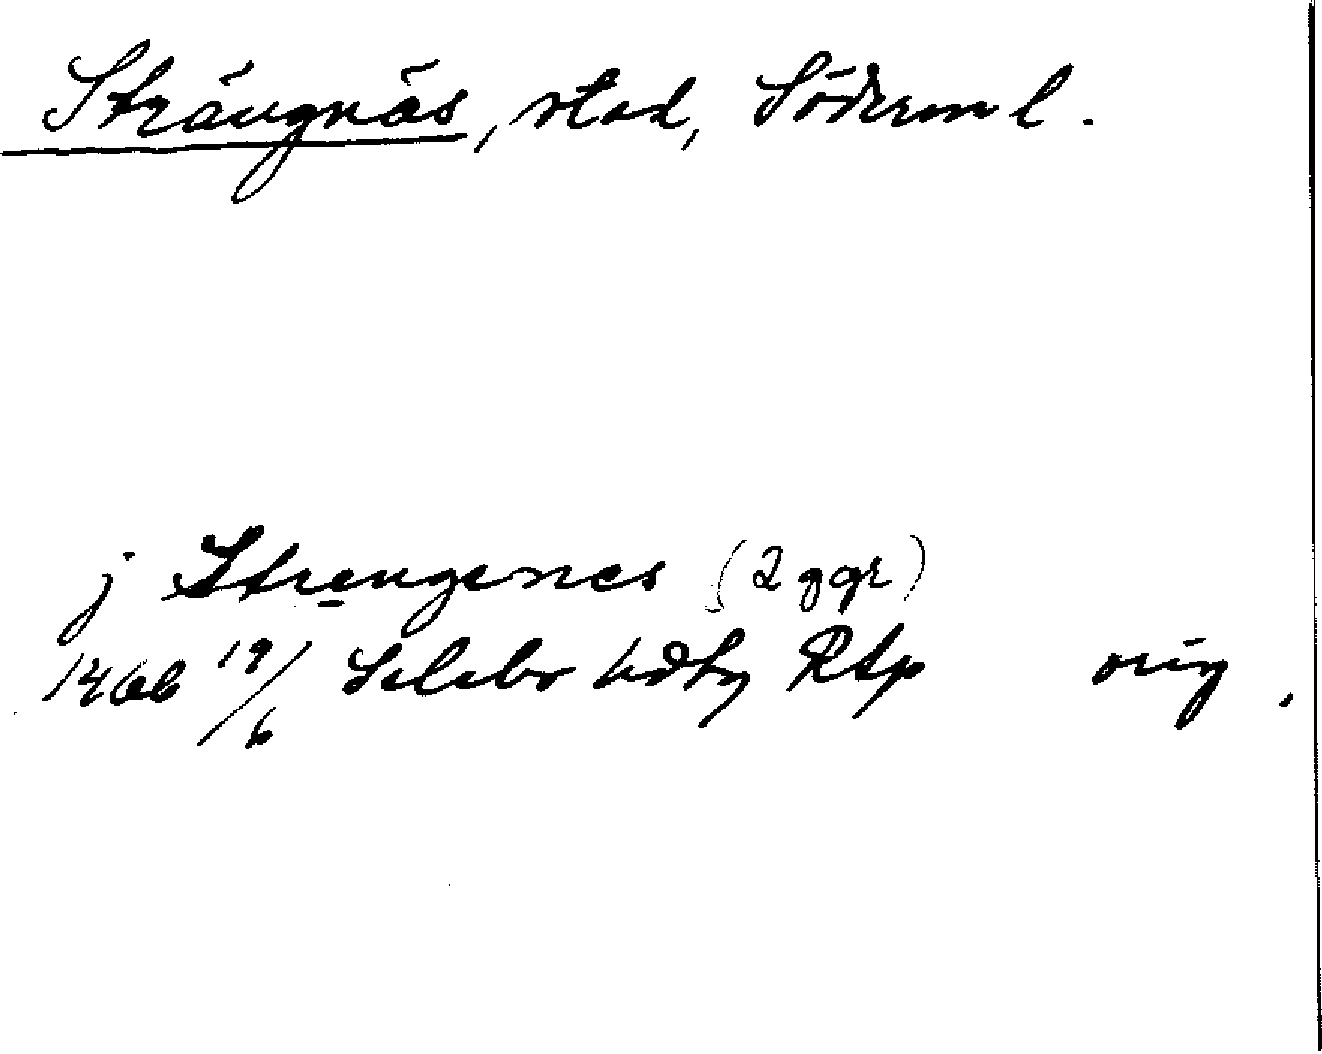 Strängnäs, stad, Söderml.
j Strengenes (2 ggr)
1466 19/6 Selebo hdtg RAp orig.